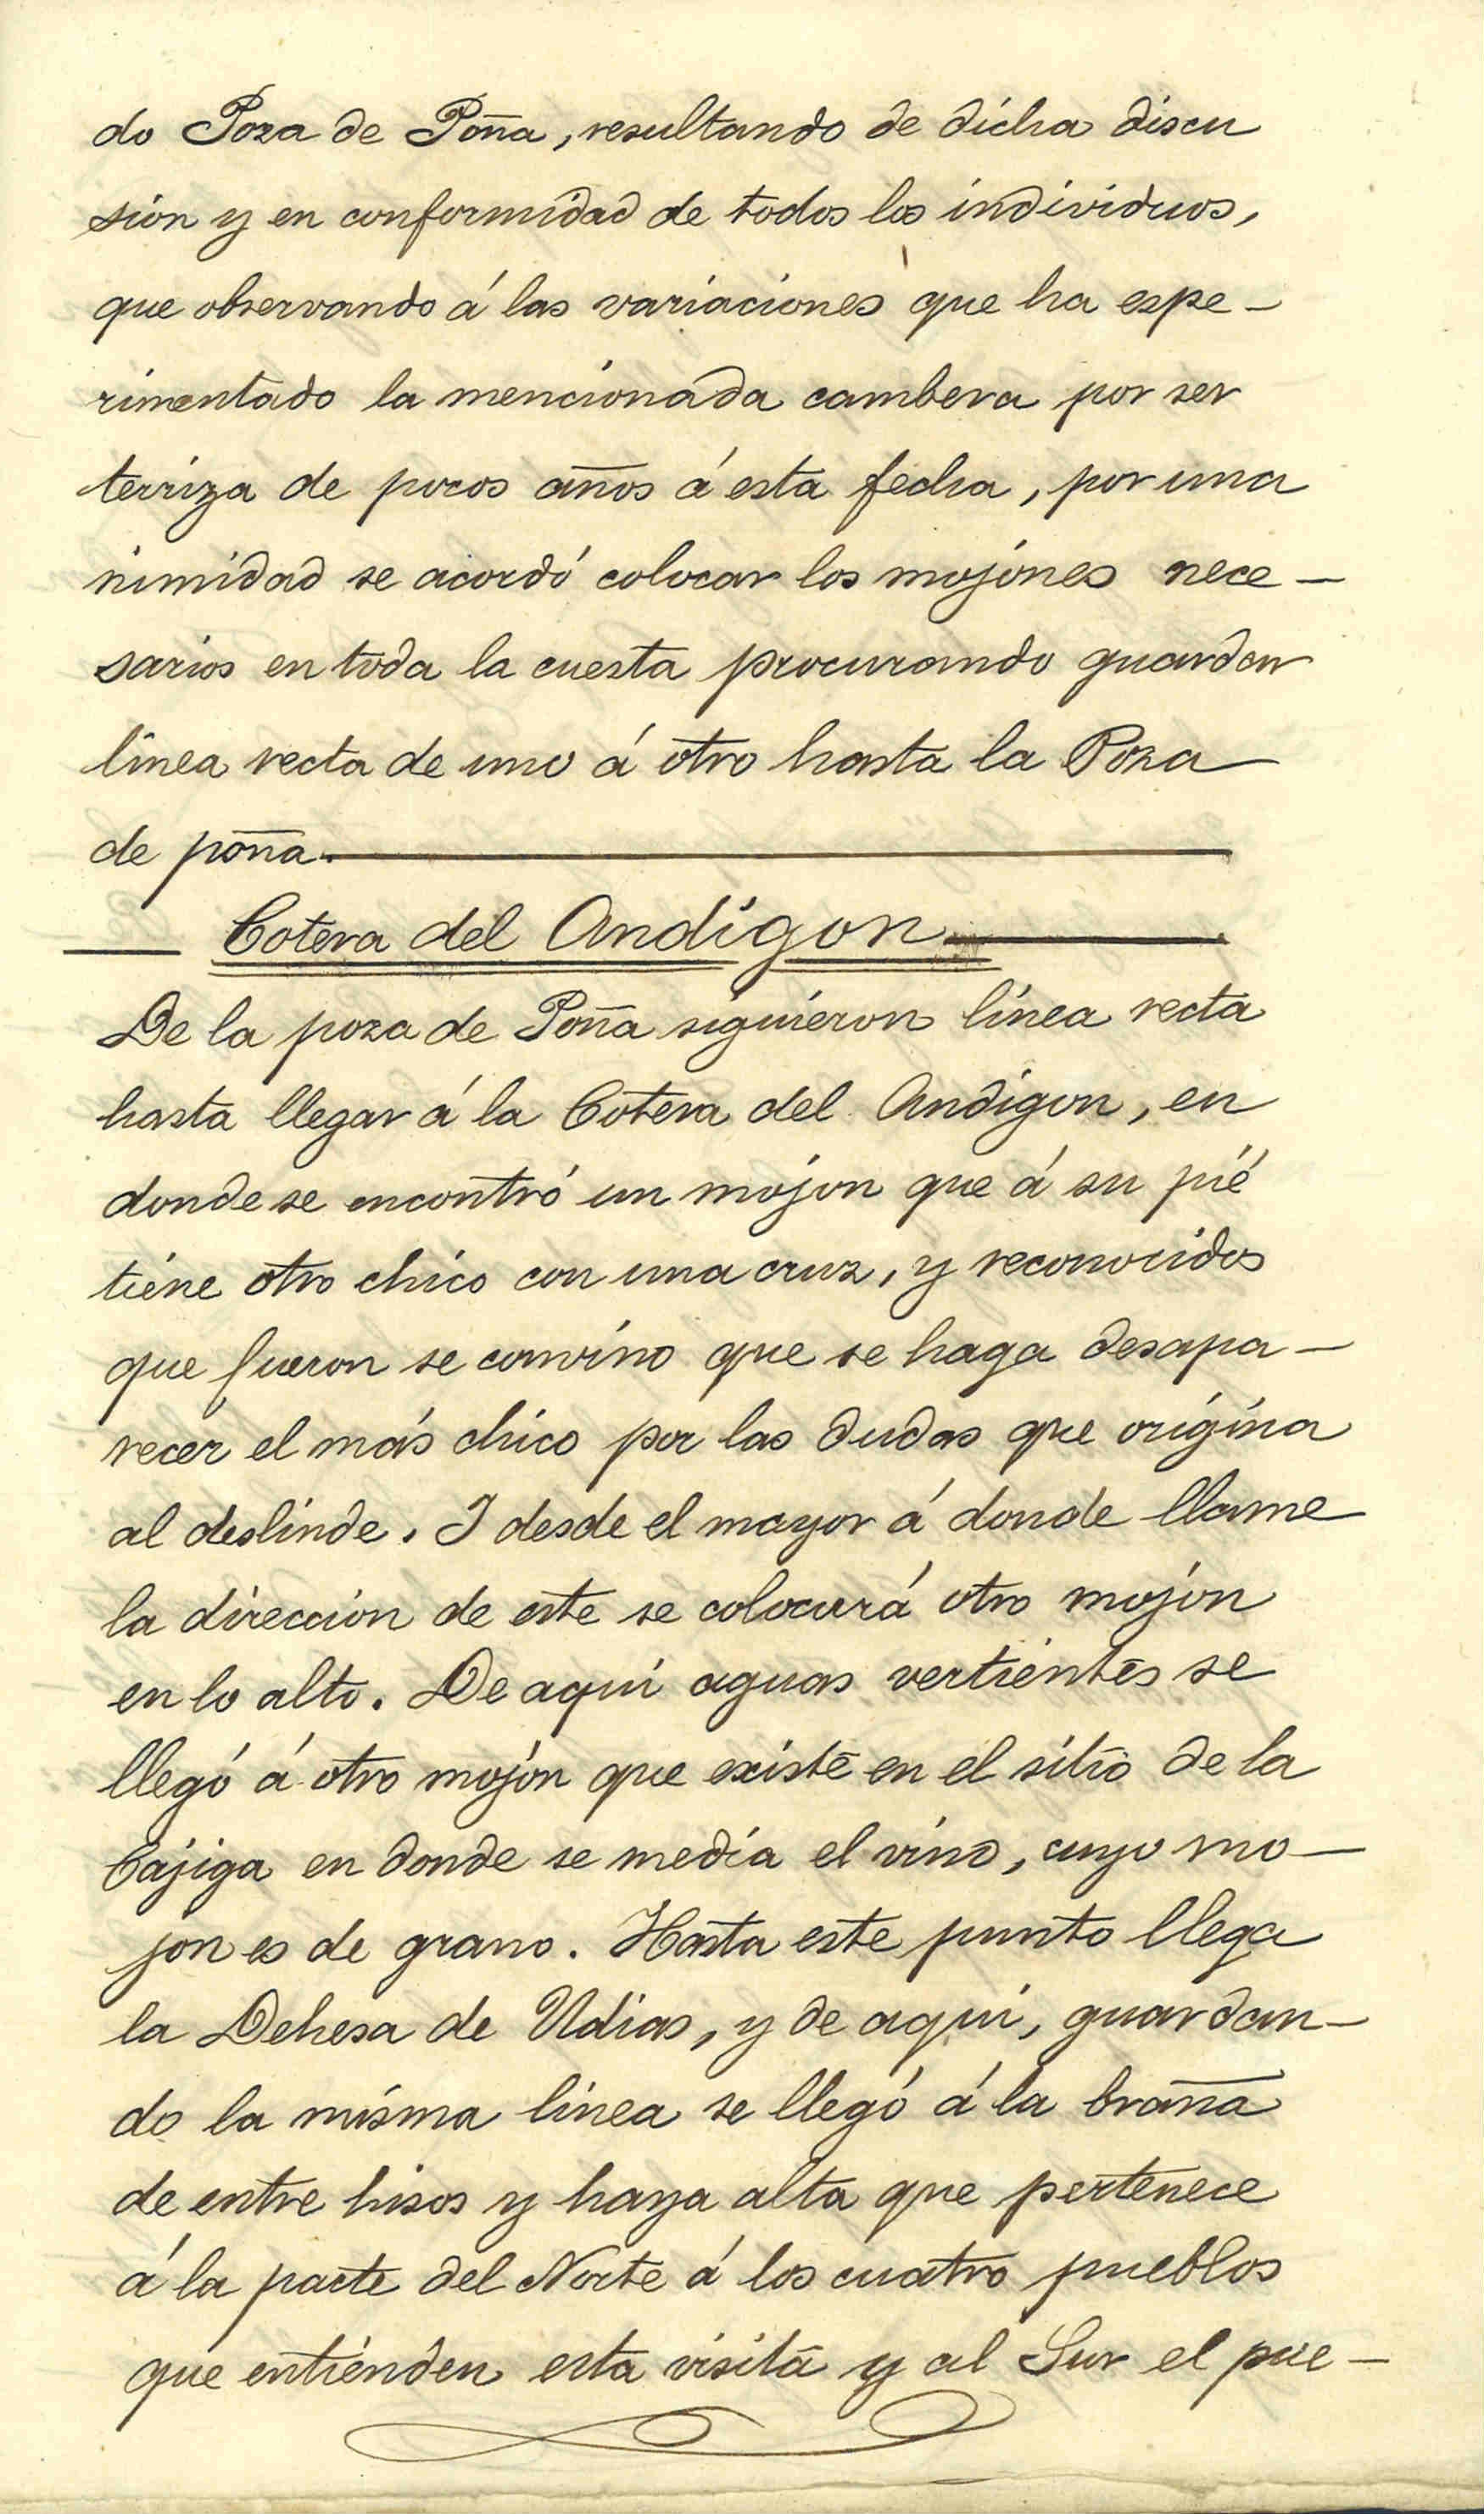 do Poza de Poña, resultando de dicha discu
sion y en conformidad de todos los individuos,
que observando á las variaciones que ha espe-
rimentado la mencionada cambera por ser
terriza de pocos años á esta fecha, por una
nimidad se acordó colocar los mojones nece-
sarios en toda la cuesta procurando guarden
línea recta de uno á otro hasta la Poza
de poña.
Cotera del Andigon
De la poza de Poña siguieron línea recta
hasta llegar á la Cotera del Andigon, en
donde se encontró un mojon que á su pié
tiene otro chico con una cruz, y reconocidos
que fueron se convino que se haga desapa-
recer el más chico por las dudas que origina
al deslinde. I desde el mayor á donde llame
la direccion de este se colocará otro mojon
en lo alto. De aquí aguas vertientes se
llegó á otro mojón que existe en el sitio de la
Cajiga en donde se medía el vino, cuyo mo-
jon es de grano. Hasta este punto llega
la Dehesa de Udias, y de aquí, guardan-
do la misma línea se llegó á la braña
de entre hisos y haya alta que pertenece
á la parte del Norte á los cuatro pueblos
que entienden esta visita y al Sur el pue-